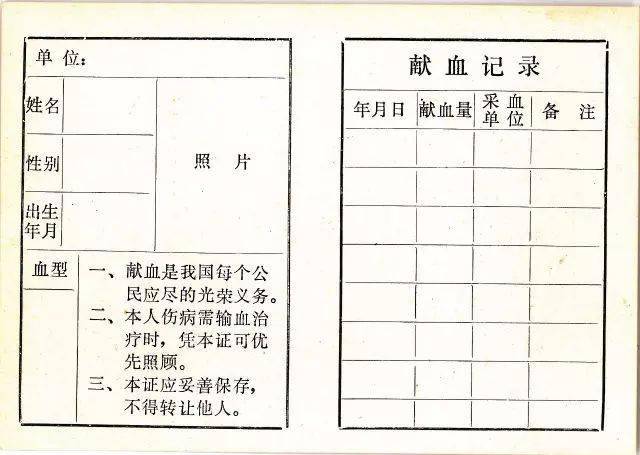 单位：
姓名
照片
性别
出生
年月
血型
一、献血是我国每个公
民应尽的光荣义务。
二、本人伤病需输血治
疗时，凭本证可优
先照顾。
三、本证应妥善保存，
不得转让他人。
献血记录
年月日 献血量 采血单位 备注